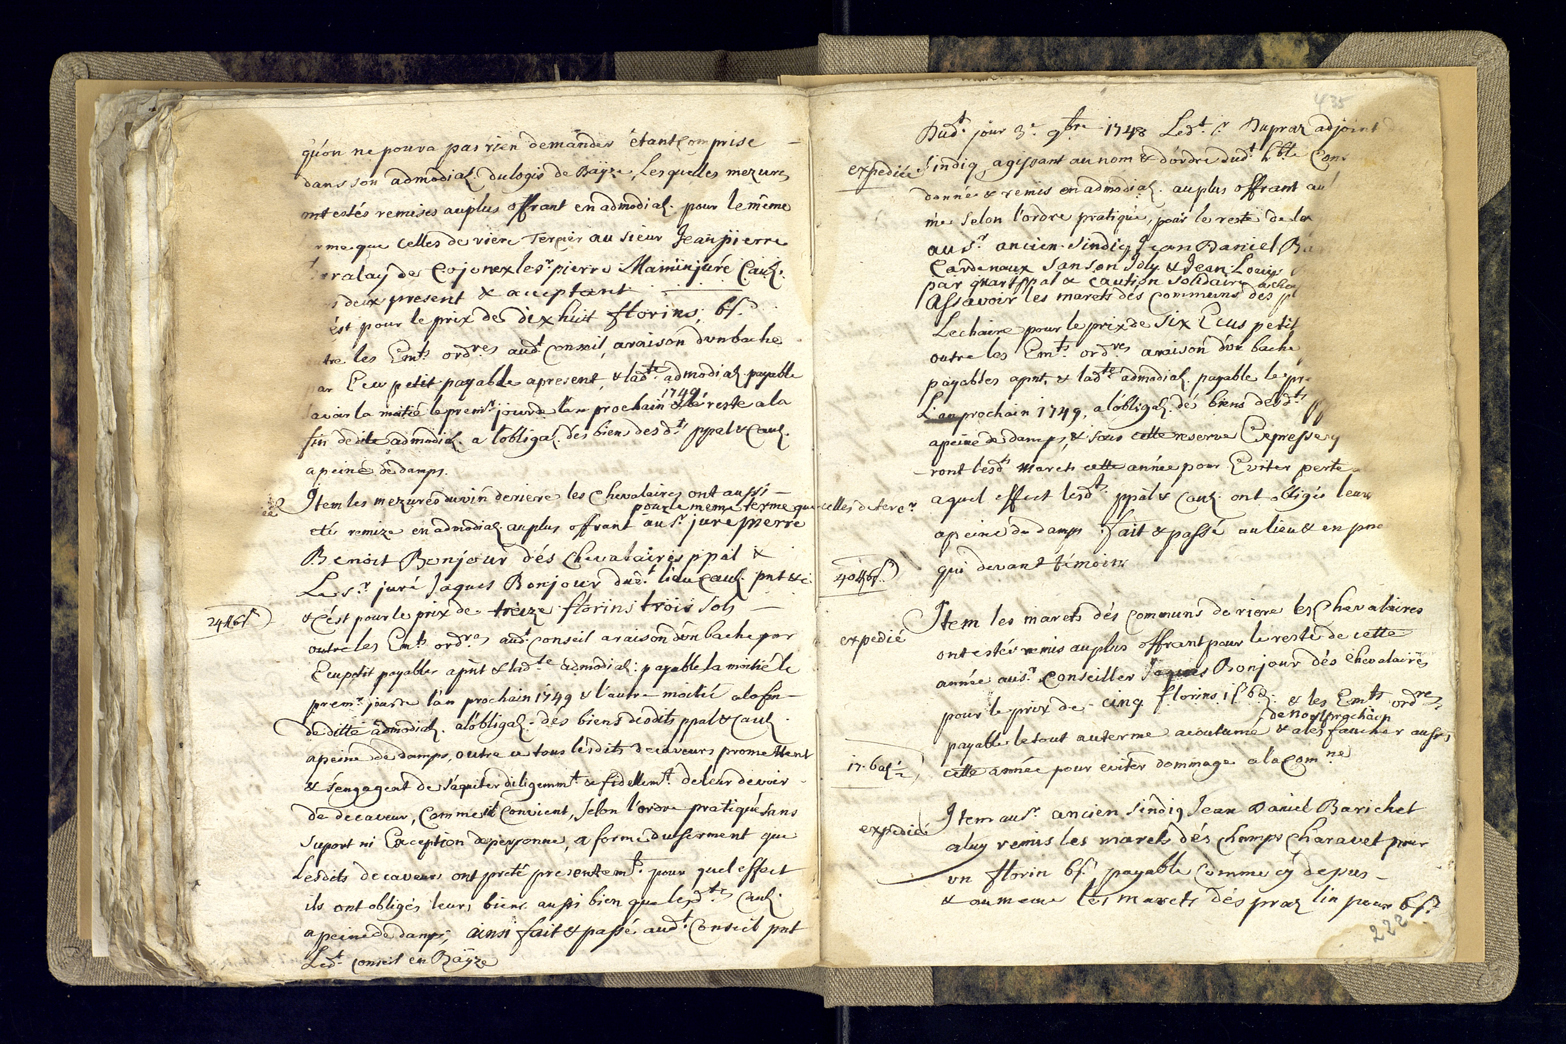 qu'on ne poura pas rien demander étant comprise
dans son admodiaõn du logis de Bäyze, Lesquelles mezures
ont estés remises au plus offrant en admodiaõn. pour le même
terme que celles de riere Tercier au sieur Jean pierre
ralay de Cojonex le sr. pierre Mamin juré Cauõn.
deux present & acceptant
est pour le prix de dix huit florins, 6 s.
outre les Emts. ordres. audt. Conseil, a raison d'un bache
par Ecu petit payable apresent, & ladte. admodiaõn payable
savoir la moitié le premr. jour de l'an prochain 1749 & le reste a la
fin de dite admodiaõn a l'obligaõn. des biens desdts. ppal & Cauõn.
a peine de damps.
Item les mezures du vin deriere les Chevalaires ont aussi
pour le meme terme que celles de terer.
etés remize en admodiaõn au plus offrant au sr. juré pierre
Benoit Bonjour dés Chevalaires ppal &
Le sr. juré Jaques Bonjour dudt. lieu Cauõn. pnt &
24 ff 6 s
& C'est pour le prix de treize florins trois sols
outre les Emts. ordres. audt. Conseil a raison d'un bache par
Ecu petit payables apñt & ladte. admodiaõn: payable la moitié le
premr. jour de l'an prochain 1749 & l'autre moitié a la fin
de ditte admodiaõn. a l'obligaõn. des biens desdits ppal & Cauõn.
a peine de damps, outre ce tous lesdits decaveurs promettent
& s'engagent de s'aquiter diligemmt. & fidellemt. de leur devoir
de decaveur, Comme il Convient, selon l'ordre pratiqué sans
suport ni Exception de personne, a forme du serment que
Lesdits decaveurs ont preté presentemt. pour quel effect
ils ont obligés leurs biens aussi bien que lesdts. Cauõn.
a peine de damps, ainsi fait & passé audt. Conseil pnt
Ledt. Conseil en Bäyze
435
Dudt. jour 3e. 9bre 1748 Ledt. sr. Dupraz adjoint
expediée
sindiq, agissant au nom & d'ordre dudt. hble Con
donné & remis en admodiaõn. au plus offrant au
me selon l'ordre pratiqué, pour le reste de la
au sr. ancien sindiq Jean Daniel Ba
Cardenaux Sanson Joly & Jean Louis
par quart ppal & caution solidaire
Assavoir les marets des Communs des pl
Lechaire pour le prix de six Ecus petit
outre les Emts. ordres a raison d'un bache
payables apnt, & ladte. admodiaõn. payable le pr
L'an prochain 1749, a l'obligaõn. dés biens desdts.
a peine de damps, & sous cette reserve Expresse q
ront lesdts. marets cette année pour Eviter perte
a quel effect lesdts. ppal & Cauõn. ont obligés leurs
a peine de damps fait & passé au lieu & en pnce
40 ff 6 s
qui devant témoins
Item les marets dés Communs de riere les Chevalaires
expedié
ont estés remis au plus offrant pour le reste de cette
année au sr. Conseiller Jaques Bonjour dés Chevalaires
pour le prix de cinq florins 1 s 6 d & les Emts. ordres,
de Noel prochain
payable le tout au terme acoutumé & a les faucher aussi
17. ba 1/2
cette année pour eviter dommage a la Comne.
expediée
Item au sr. ancien sindiq Jean Daniel Barichet
a luy remis les marets dés Champs Charavet pour
un florin 6 s. payable comme cy depus
& au meme les marets dés praz lin pour 6 s.
222